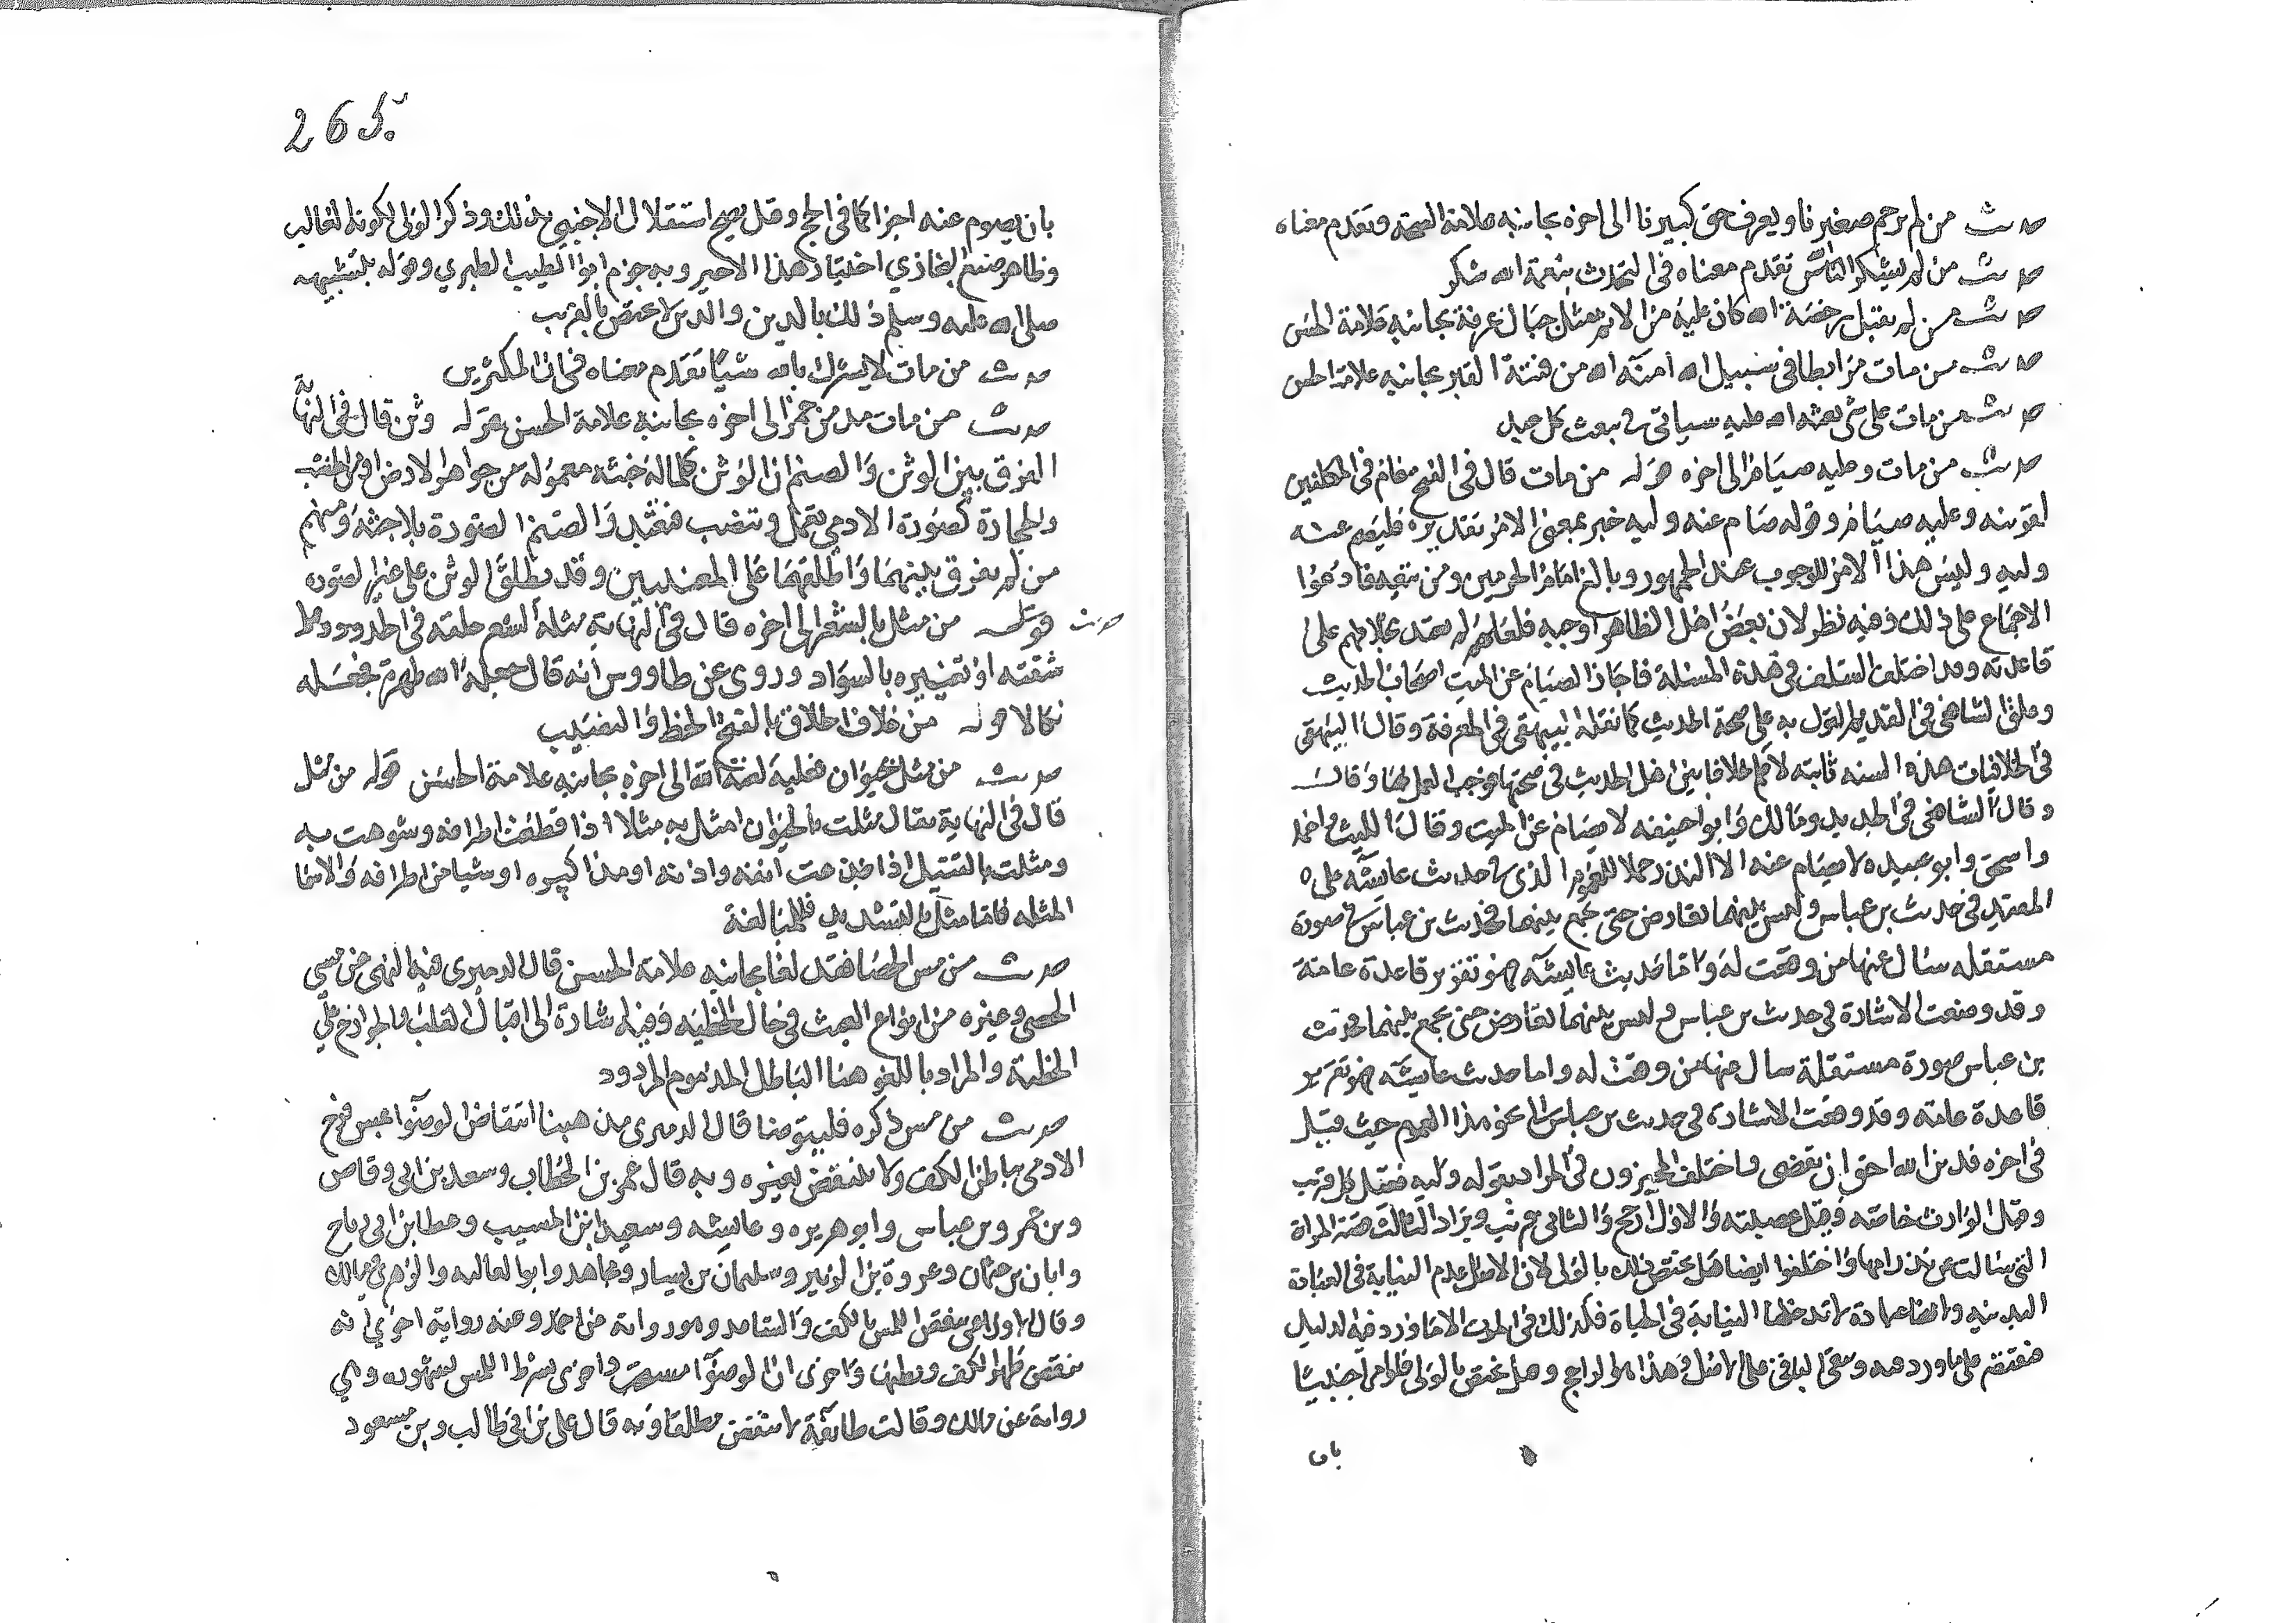 حديث من لم يرحم صغيرنا ويعرف حق كبيرنا الى اخره بجانبه علامة الصحة وتقدم معناه
حديث من لم يشكر الناس تقدم معناه في التحدث بنعمة الله شكر
حديث من لم يقبل رخصة الله كان عليه من الاثم مثل جبال عرفة بجانبه علامة الحسن
حديث من مات مرابطا في سبيل الله امنه الله من فتنة القبر بجانبه علامة الحسن
حديث من مات على شي بعثه الله عليه سياتي في يبعث كل عبد
حديث من مات وعليه صيام الى اخره قوله من مات قال في الفتح عام في المكلفين
لقرينة وعليه صيام وقوله صام عنه وليه خبر بمعنى الامر تقديره فليصم عنه
وليه وليس هذا الامر للوجوب عند الجمهور وبالغ امام الحرمين ومن تبعه فادعوا
الاجماع على ذلك وفيه نظر لان بعض اهل الظاهر اوجبه فلعله لم يعتد بخلافهم على
قاعدته وقد اختلف السلف في هذه المسئلة فاجاز الصيام عن الميت اصحاب الحديث
وعلق الشافعي في القديم القول به على صحة الحديث كما نقله البيهقي في المعرفة وقال البيهقي
في الخلافيات هذه السنه ثابته لا اعلم خلافا بين اهل الحديث في صحتها فوجب العمل بها وقال
وقال الشافعي في الجديد ومالك وابو حنيفه لا يصام عن الميت وقال الليث واحمد
واسحق وابو عبيد لا يصام عنه الا النذر حملا للعموم الذي في حديث عايشه على
المقيد في حديث بن عباس وليس بينهما تعارض حتى يجمع بينهما فحديث بن عباس في صورة
مستقله سال عنها من وقعت له واما حديث عايشه فهو تقرير قاعدة عامة
وقد وقعت الاشارة في حديث بن عباس وليس بينهما تعارض حتى يجمع بينهما فحديث
بن عباس صورة مستقلة سال عنها من وقعت له واما حديث عايشه فهو تقرير
قاعدة عامه وقد وقعت الاشارة في حديث بن عباس الى نحو هذا العموم حيث قيل
في اخره فدين الله احق ان يقضى واختلف المجيزون في المراد بقوله وليه فقيل كل قريب
وقيل الوارث خاصه وقيل عصبته والاول ارجح والثاني قريب ويراد الثالث قصة المراة
التي سالت عن نذر امها واختلفوا ايضا هل يختص ذلك بالولي لان الاصل عدم النيابة في العبادة
البدنيه ولانها عبادة لا تدخلها النيابة في الحياة فكذلك في الموت الا ما ورد فيه الدليل
فيقتصر على ما ورد فيه ويبقى الباقي على الاصل وهذا هو الراجح وهل يختص بالولي فلو امر اجنبيا
بان
265
بان يصوم عنه اجزا كما في الحج وقيل يصح استقلال الاجنبي بذلك وذكر الولي لكونه الغالب
وظاهر صنيع البخاري اختيار هذا الاخير وبه جزم ابو الطيب الطبري وقواه بتشبيهه
صلى الله عليه وسلم ذلك بالدين والدين لا يختص بالقريب
حديث من مات لا يشرك بالله شيا تقدم معناه في ان المكثرين
حديث من مات مدمن خمر الى اخره بجانبه علامة الحسن قوله وثن قال في النهاية
الفرق بين الوثن والصنم ان الوثن كلما له جثة معموله من جواهر الارض او من الخشب
والحجارة كصورة الادمي تعمل وتنصب فتعبد والصنم الصورة بلا جثة ومنهم
من لم يفرق بينهما واطلقهما على المعنيين وقد يطلق الوثن على غير الصوره
حديث قوله من مثل بالشعر الى اخره قال في النهاية مثلة الشعر حلقه في الخدود وقيل
نتفه او تغييره بالسواد وروى عن طاووس انه قال جعله الله طهرة فجعله
نكالا قوله من خلاق الخلاق بالفتح الحظ والنصيب
حديث من مثل بحيوان فعليه لعنة الله الى اخره بجانبه علامة الحسن قوله من مثل
قال في النهاية يقال مثلت بالحيوان امثل به مثلا اذا قطعت اطرافه وشوهت به
ومثلت بالقتيل اذا جدعت انفه واذنه او مذاكيره او شيا من اطرافه والاسم
المثله فاما مثل بالتشديد فللمبالغة
حديث من مس الحصا فقد لغا بجانبه علامة الحسن قال الدميري فيه النهي عن مس
الحصى وغيره من انواع العبث في حال الخطبه وفيه اشارة الى اقبال القلب والجوارح على
الخطبة والمراد باللغو هنا الباطل المذموم المردود
حديث من مس ذكره فليتوضا قال الدميري مذهبنا انتقاض الوضوء بمس فرج
الادمي بباطن الكف ولا ينتقض بغيره وبه قال عمر بن الخطاب وسعد بن ابي وقاص
وبن عمر وبن عباس وابو هريره وعايشه وسعيد ابن المسيب وعطا بن ابي رباح
وابان بن عثمان وعروة بن الزبير وسليمان بن يسار ومجاهد وابو العاليه والزهري ومالك
وقال الاوزاعي ينقض اللمس بالكف والساعد وهو رواية عن احمد وعنه رواية اخرى انه
ينقض ظهر الكف وبطنها واخرى ان الوضوء مستحب واخرى بشرط اللمس بشهوه وهي
رواية عن مالك وقالت طائفة لا ينتقض مطلقا وبه قال علي بن ابي طالب وبن مسعود